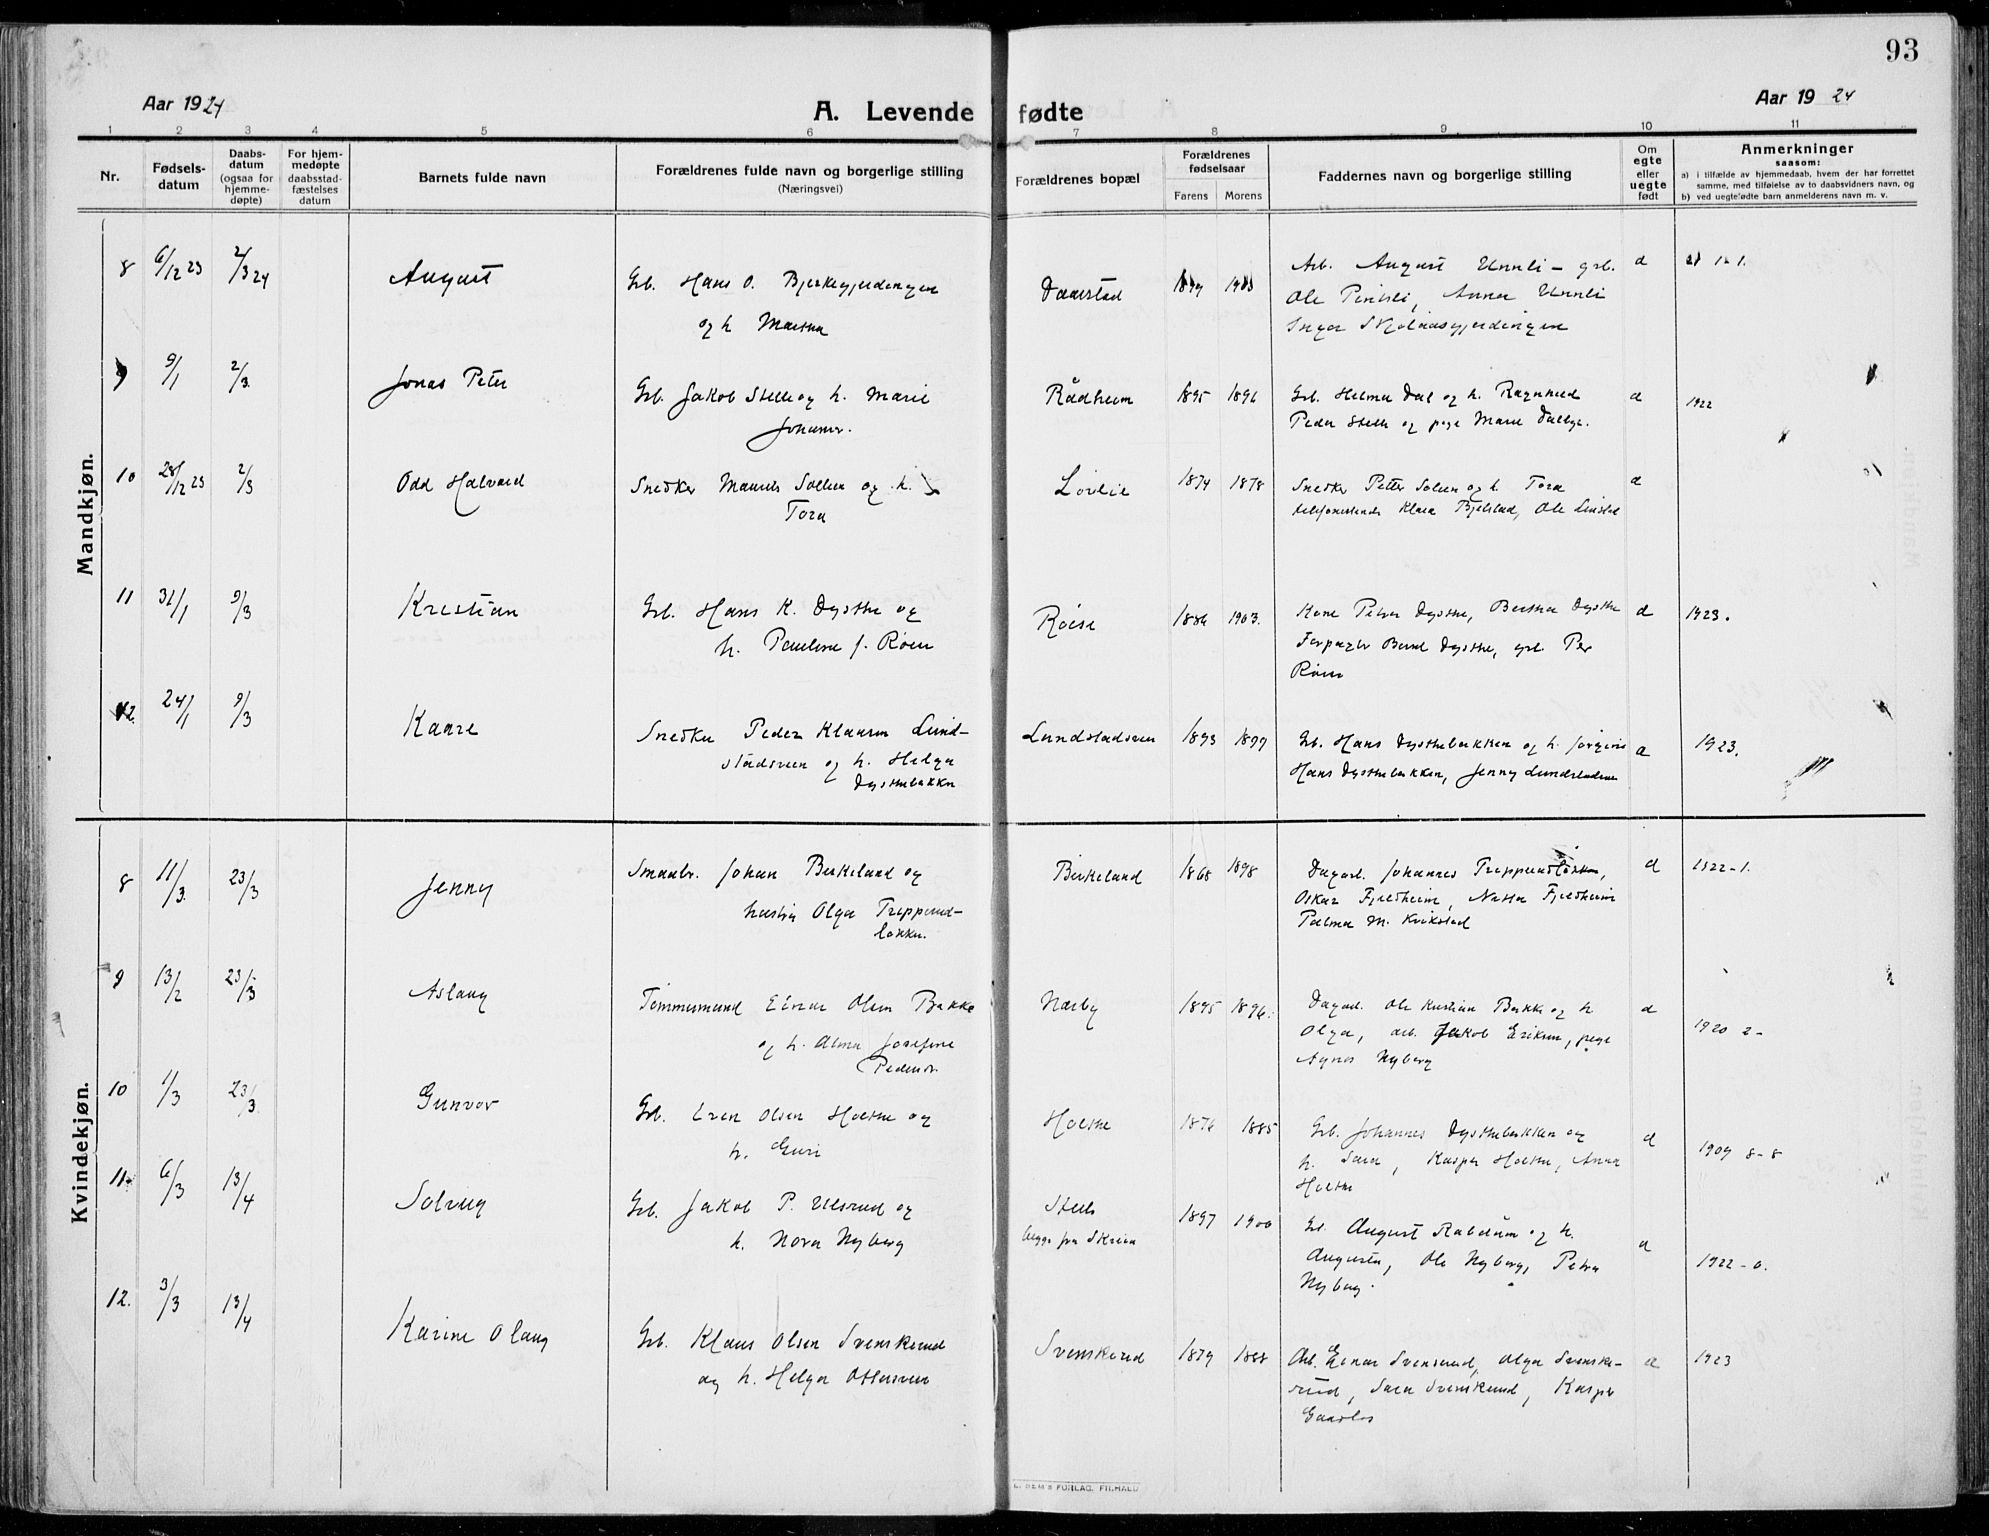 93
Aar 1924
A. Levende fødte
Aar 1924
1 2 3 4 5 6 7 8 9 10 11
Nr.
Fødsels-
datum
Daabs-
datum
(ogsaa for
hjemme-
døpte)
For hjem-
medøpte
daabsstad-
fæstelses
datum
Barnets fulde navn
Forældrenes fulde navn og borgerlige stilling
(Næringsvei)
Forældrenes bopæl
Forældrenes
fødselsaar
Farens Morens
Faddernes navn og borgerlige stilling
Om
egte
eller
uegte
født
Anmerkninger
saasom:
a) i tilfælde av hjemmedaab, hvem der har forrettet
samme, med tilføielse av to daabsvidners navn, og
b) ved uegtefødte barn anmelderens navn m. v.
Mandkjøn.
8 6/12 23 2/3 24 August
Grb. Hans O. Bjerkegjerdingen
og h.
1879
Arb. August Unnli - grb.
Ole, Anna Unnli
Inger
9 9/1 2/3 Jonas Peter
Grb. Jakob Stelle og h. Marie
Rådheim 1895 1896
Grb. Helmer Dal og h. Ragnhild
Peder Stelle og pige Marie Dalbye.
1922
10 28/12 23 2/3 Odd Halvard
Snedker Sollien og h.
Tora
Lovlie 1874 1878
Snedker Petter Solien og h. Tora
Klara Bjelstad, Ole
11 31/1 9/3 Kristian
Grb. Hans K. Dysthe og
h. Pauline f. Røise
Røise 1886 1903.
Kone Petra Dysthe, Bertha Dysthe
Forpagter Bernt Dysthe, grb. Per
Røise
1923.
12. 24/1 9/3 Kaare
Snedker Peder Klausen Lund-
stadsveen og h. Helga
Dysthebakken
Lundstadsveen 1893 1899
Grb. Hans Dysthebakken og h. Jørgine
Hans Dysthebakken, Jenny Lundstadsveen
1923.
Kvindekjøn.
8 11/3 23/3 Jenny
Smaabr. Johan Birkeland og
hustru Olga Trepperud-
løkken.
Birkeland 1868 1898
Dagarb. Johannes Trepperudløkken,
Oskar Fjeldheim, Fjeldheim
Palma M. Kvikstad
1922-1.
9 13/2 23/3 Aslaug
Tømmermand Einar Olsen Bakke
og h. Alma Josefine
Pedersdr.
Narby 1895 1896.
Dagarb. Ole Kristian Bakke og h.
Olga, arb. Jakob Eriksen, pige
Agnes Nyberg
1920 2-
10 1/3 23/3 Gunvor
Grb. Even Olsen Holthe og
h. Guri
Holthe 1876 1885
Grb. Johannes Dysthebakken og
h. Sara, Kasper Holthe, Anna
Holthe
1909 8-8
11. 6/3 13/4 Solveig
Grb. Jakob P. Ulsrud og
h. Nora Nyberg
begge fra Skreia
1897 1900
August og h.
Augusta, Ole Nyberg, Petra
Nyberg.
1922-0.
12. 3/3 13/4 Karine Olaug
Grb. Klaus Olsen Svenskerud
og h. Helga
Svenskerud 1879 1888
Arb. Einar Svenserud, Olga Svenske-
rud, Sara Svenskerud, Kasper
1923